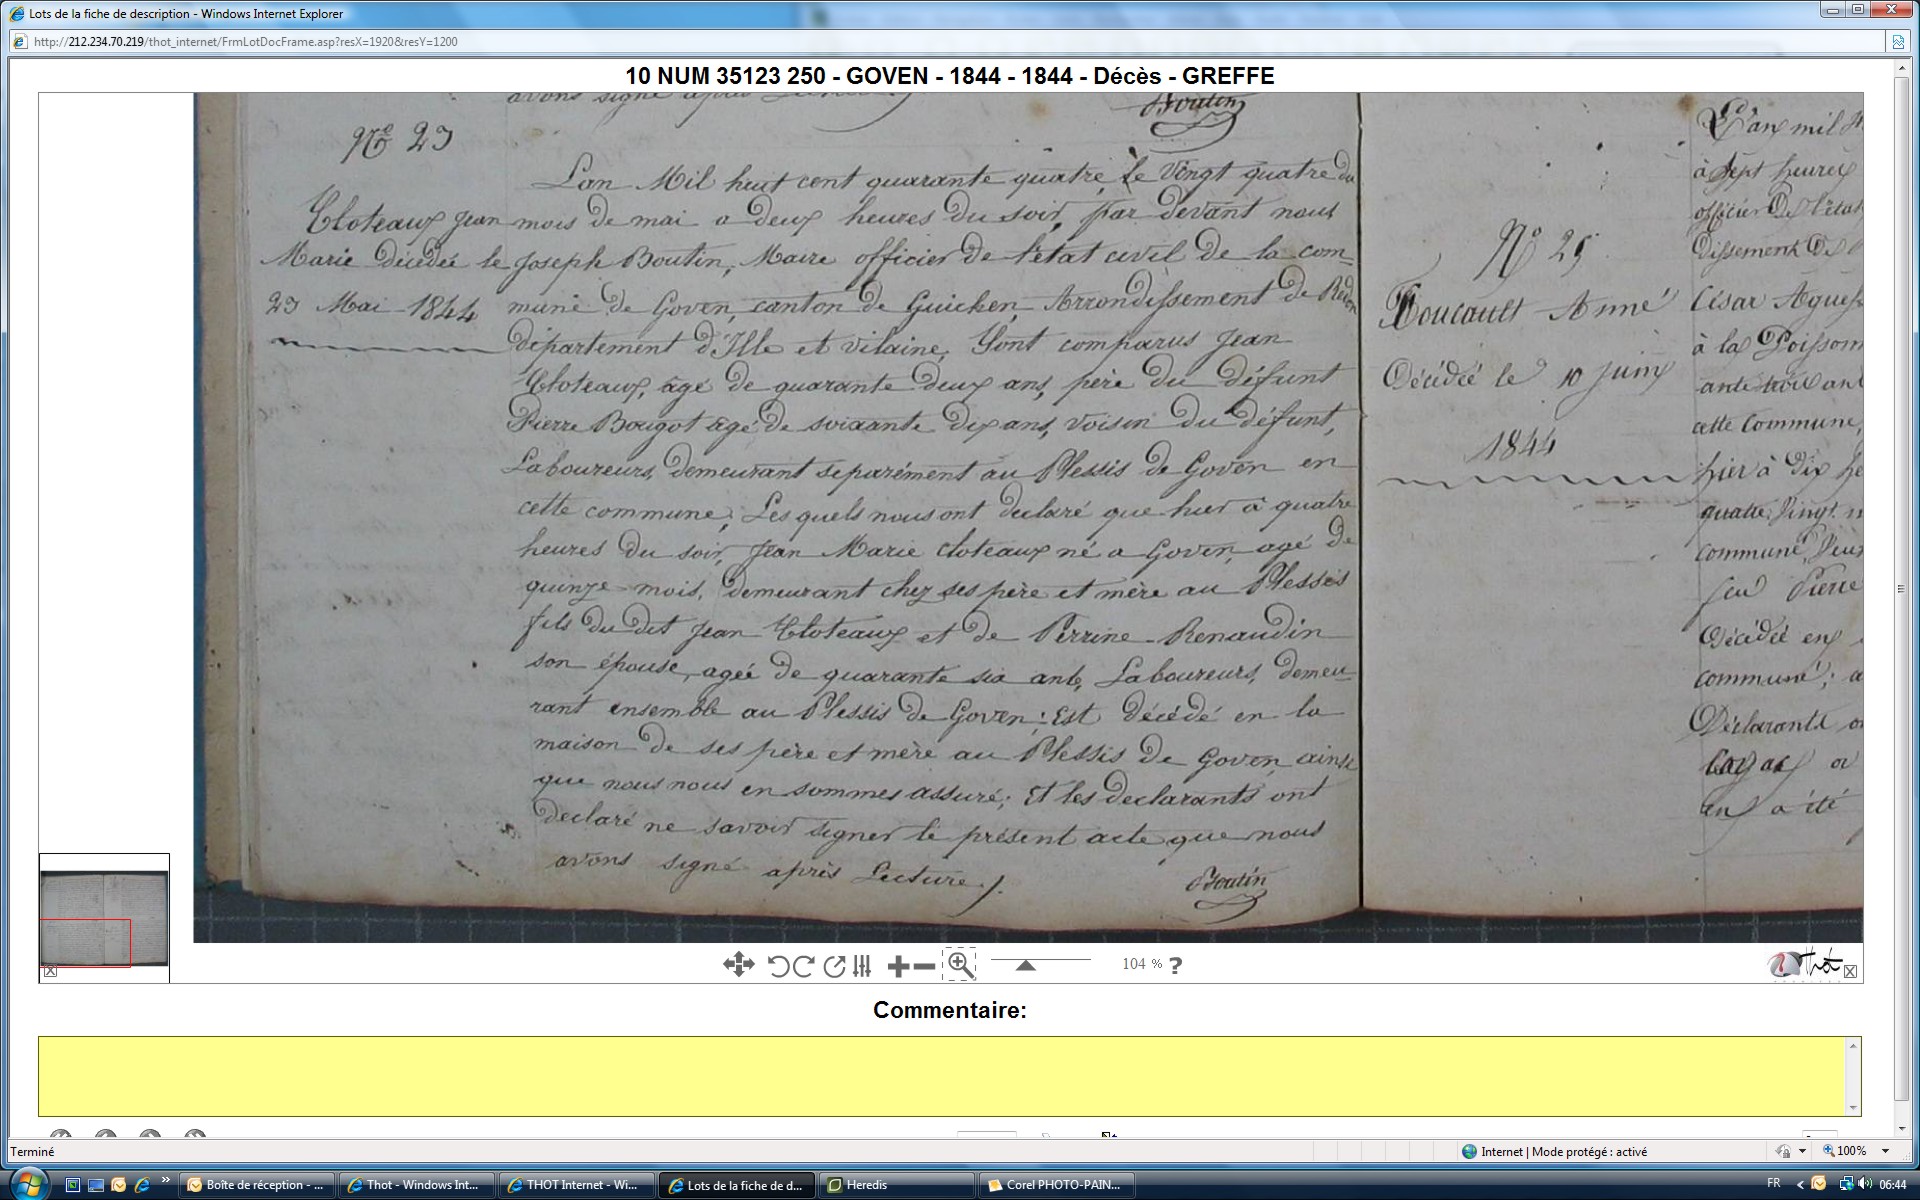 Lots de la fiche de description - Windows Internet Explorer
http://212.234.70.219/thot_internet/FrmLotDocFrame.asp?resX=1920&resY=1200
10 NUM 35123 250 - GOVEN - 1844 - 1844 - Décès - GREFFE
avons signé après
Boutin
No 23
Cloteaux Jean
Marie décédée le
23 Mai 1844
L'an Mil huit cent quarante quatre, Le Vingt quatre du
mois de mai a deux heures du soir, par devant nous
Joseph Boutin, Maire officier de l'état civil de la com-
mune de Goven, canton de Guichen, Arrondissement de Redon
département d'Ille et vilaine, Sont comparus Jean
Cloteaux, âgé de quarante deux ans, père du défunt
Pierre Bougot agé de soixante dix ans, voisin du défunt,
Laboureurs, demeurant separément au Plessis de Goven en
cette commune; Les quels nous ont declaré que hier à quatre
heures du soir, Jean Marie cloteaux né a Goven, agé de
quinze mois, demeurant chez ses père et mère au Plessis
fils du dit Jean Cloteaux et de Perrine Renaudin
son épouse, agée de quarante six ans, Laboureurs, demeu-
rant ensemble au Plessis de Goven; Est décédé en la
maison de ses père et mère au Plessis de Goven, ainsi
que nous nous en sommes assuré; Et les declarants ont
declaré ne savoir signer le présent acte que nous
avons signé après Lecture ./.
Boutin
No 25
Foucault Anné
Décédée le 10 juin
1844
L'an mil
à sept heures
officier De l'état
dissement De
César
à la Poisson
ante trois ans
cette commune,
hier à Dix he
quatre Vingt
commune, Veu
feu Pierre
Décédée en
commune; a
Déclarants
en a été
104 % ?
Thot
Commentaire:
Terminé
Internet | Mode protégé : activé
100%
Boîte de réception - ...
Thot - Windows Int...
THOT Internet - Wi...
Lots de la fiche de d...
Heredis
Corel PHOTO-PAIN...
FR
06:44